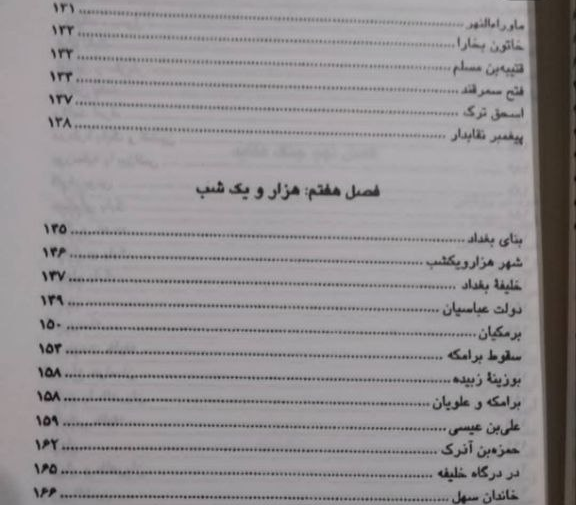 ماوراءالنهر ........ ۱۳۱
خاتون بخارا ........ ۱۳۲
قتیبه‌بن مسلم ........ ۱۳۳
فتح سمرقند ........ ۱۳۴
اسحق ترک ........ ۱۳۷
پیغمبر نقابدار ........ ۱۳۸
فصل هفتم: هزار و یک شب
بنای بغداد ........ ۱۴۵
شهر هزارویکشب ........ ۱۴۶
خلیفهٔ بغداد ........ ۱۴۷
دولت عباسیان ........ ۱۴۹
برمکیان ........ ۱۵۰
سقوط برامکه ........ ۱۵۴
بوزینهٔ زبیده ........ ۱۵۸
برامکه و علویان ........ ۱۵۸
علی‌بن عیسی ........ ۱۵۹
حمزه‌بن آذرک ........ ۱۶۲
در درگاه خلیفه ........ ۱۶۵
خاندان سهل ........ ۱۶۶